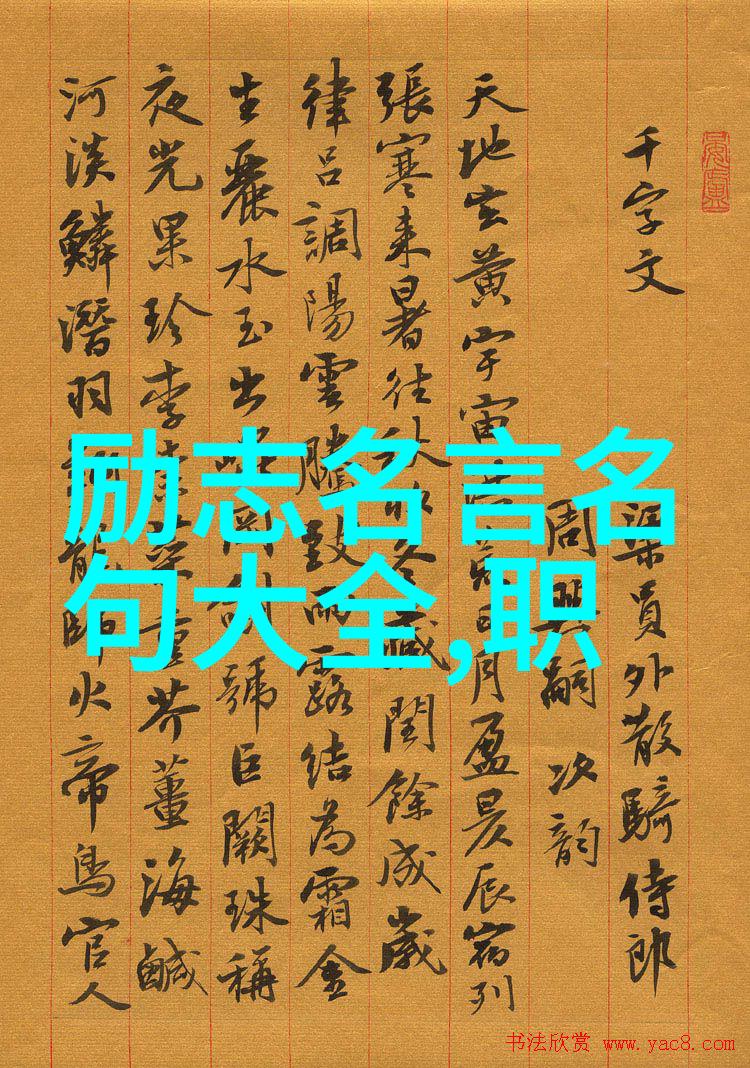 千字文
梁員外散騎侍郎
周興嗣次韵
天地玄黃宇宙洪荒日月盈昃辰宿列
張寒来暑往秋收冬藏閏餘成歲
律呂調陽雲騰致雨露結為霜金
生麗水玉出崐岡劍號巨闕珠稱
夜光果珍李柰菜重芥薑海鹹
河淡鱗潛羽翔龍師火帝鳥官人
励志名言名
句大全,职
书法欣赏 www.yac8.com